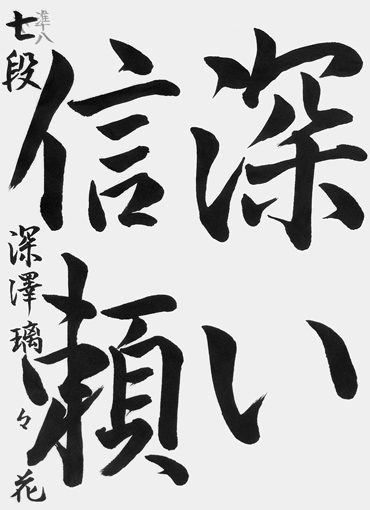 深い
信頼
準八
七段
深澤璃々花